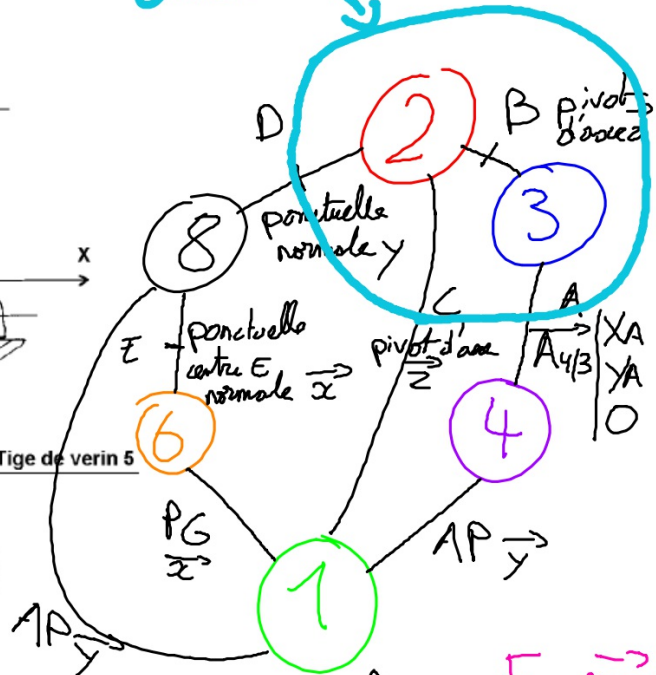 D
2
B pivot
d'axe z
8
ponctuelle
normale y
3
x
E
ponctuelle
centre E
normale x
C
pivot d'axe
z
A
A4/3
XA
YA
O
6
4
Tige de verin 5
PG
x
AP y
1
AP
y